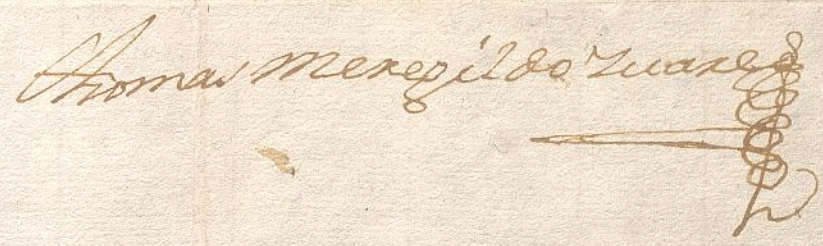 Thomas Meregildo Zuares